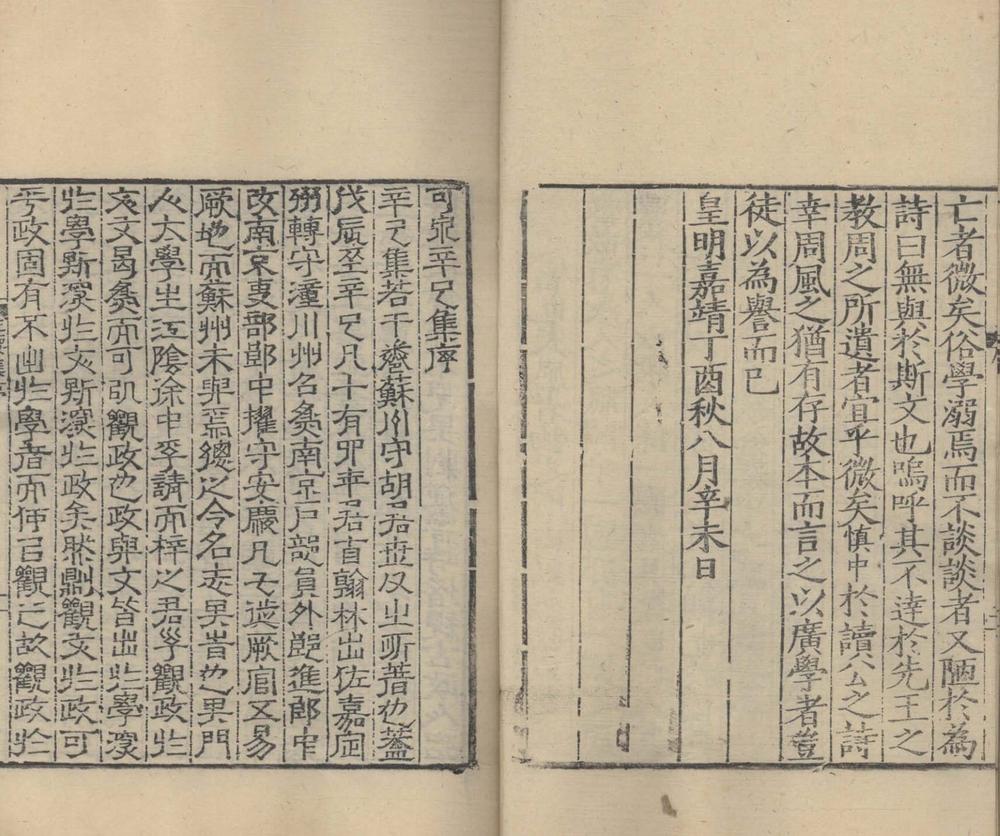 亡者微矣俗學溺焉而不談談者又陋於為
詩曰無與於斯文也嗚呼其不達於先王之
教周之所遺者宜乎微矣慎中於讀公之詩
幸周風之猶有存故本而言之以廣學者豈
徒以為譽而已
皇明嘉靖丁酉秋八月辛未日
可泉辛巳集序
辛巳集若干卷蘇州守胡君之所著也蓋
戊辰至辛巳凡十有四年君自翰林出佐嘉定
轉守潼川州召為南京戶部員外郎進郎中
改南京吏部郎中擢守安慶凡五遷厥官又易
厥地而蘇州未與焉總以今名志異旹也異門
人太學生江陰徐中孚請而梓之君子觀政於
文文曷為而可以觀政也政與文皆出於學深
於學斯深於文斯深於政矣然則觀文於政可
乎政固有不出於學者而何以觀之故觀政於